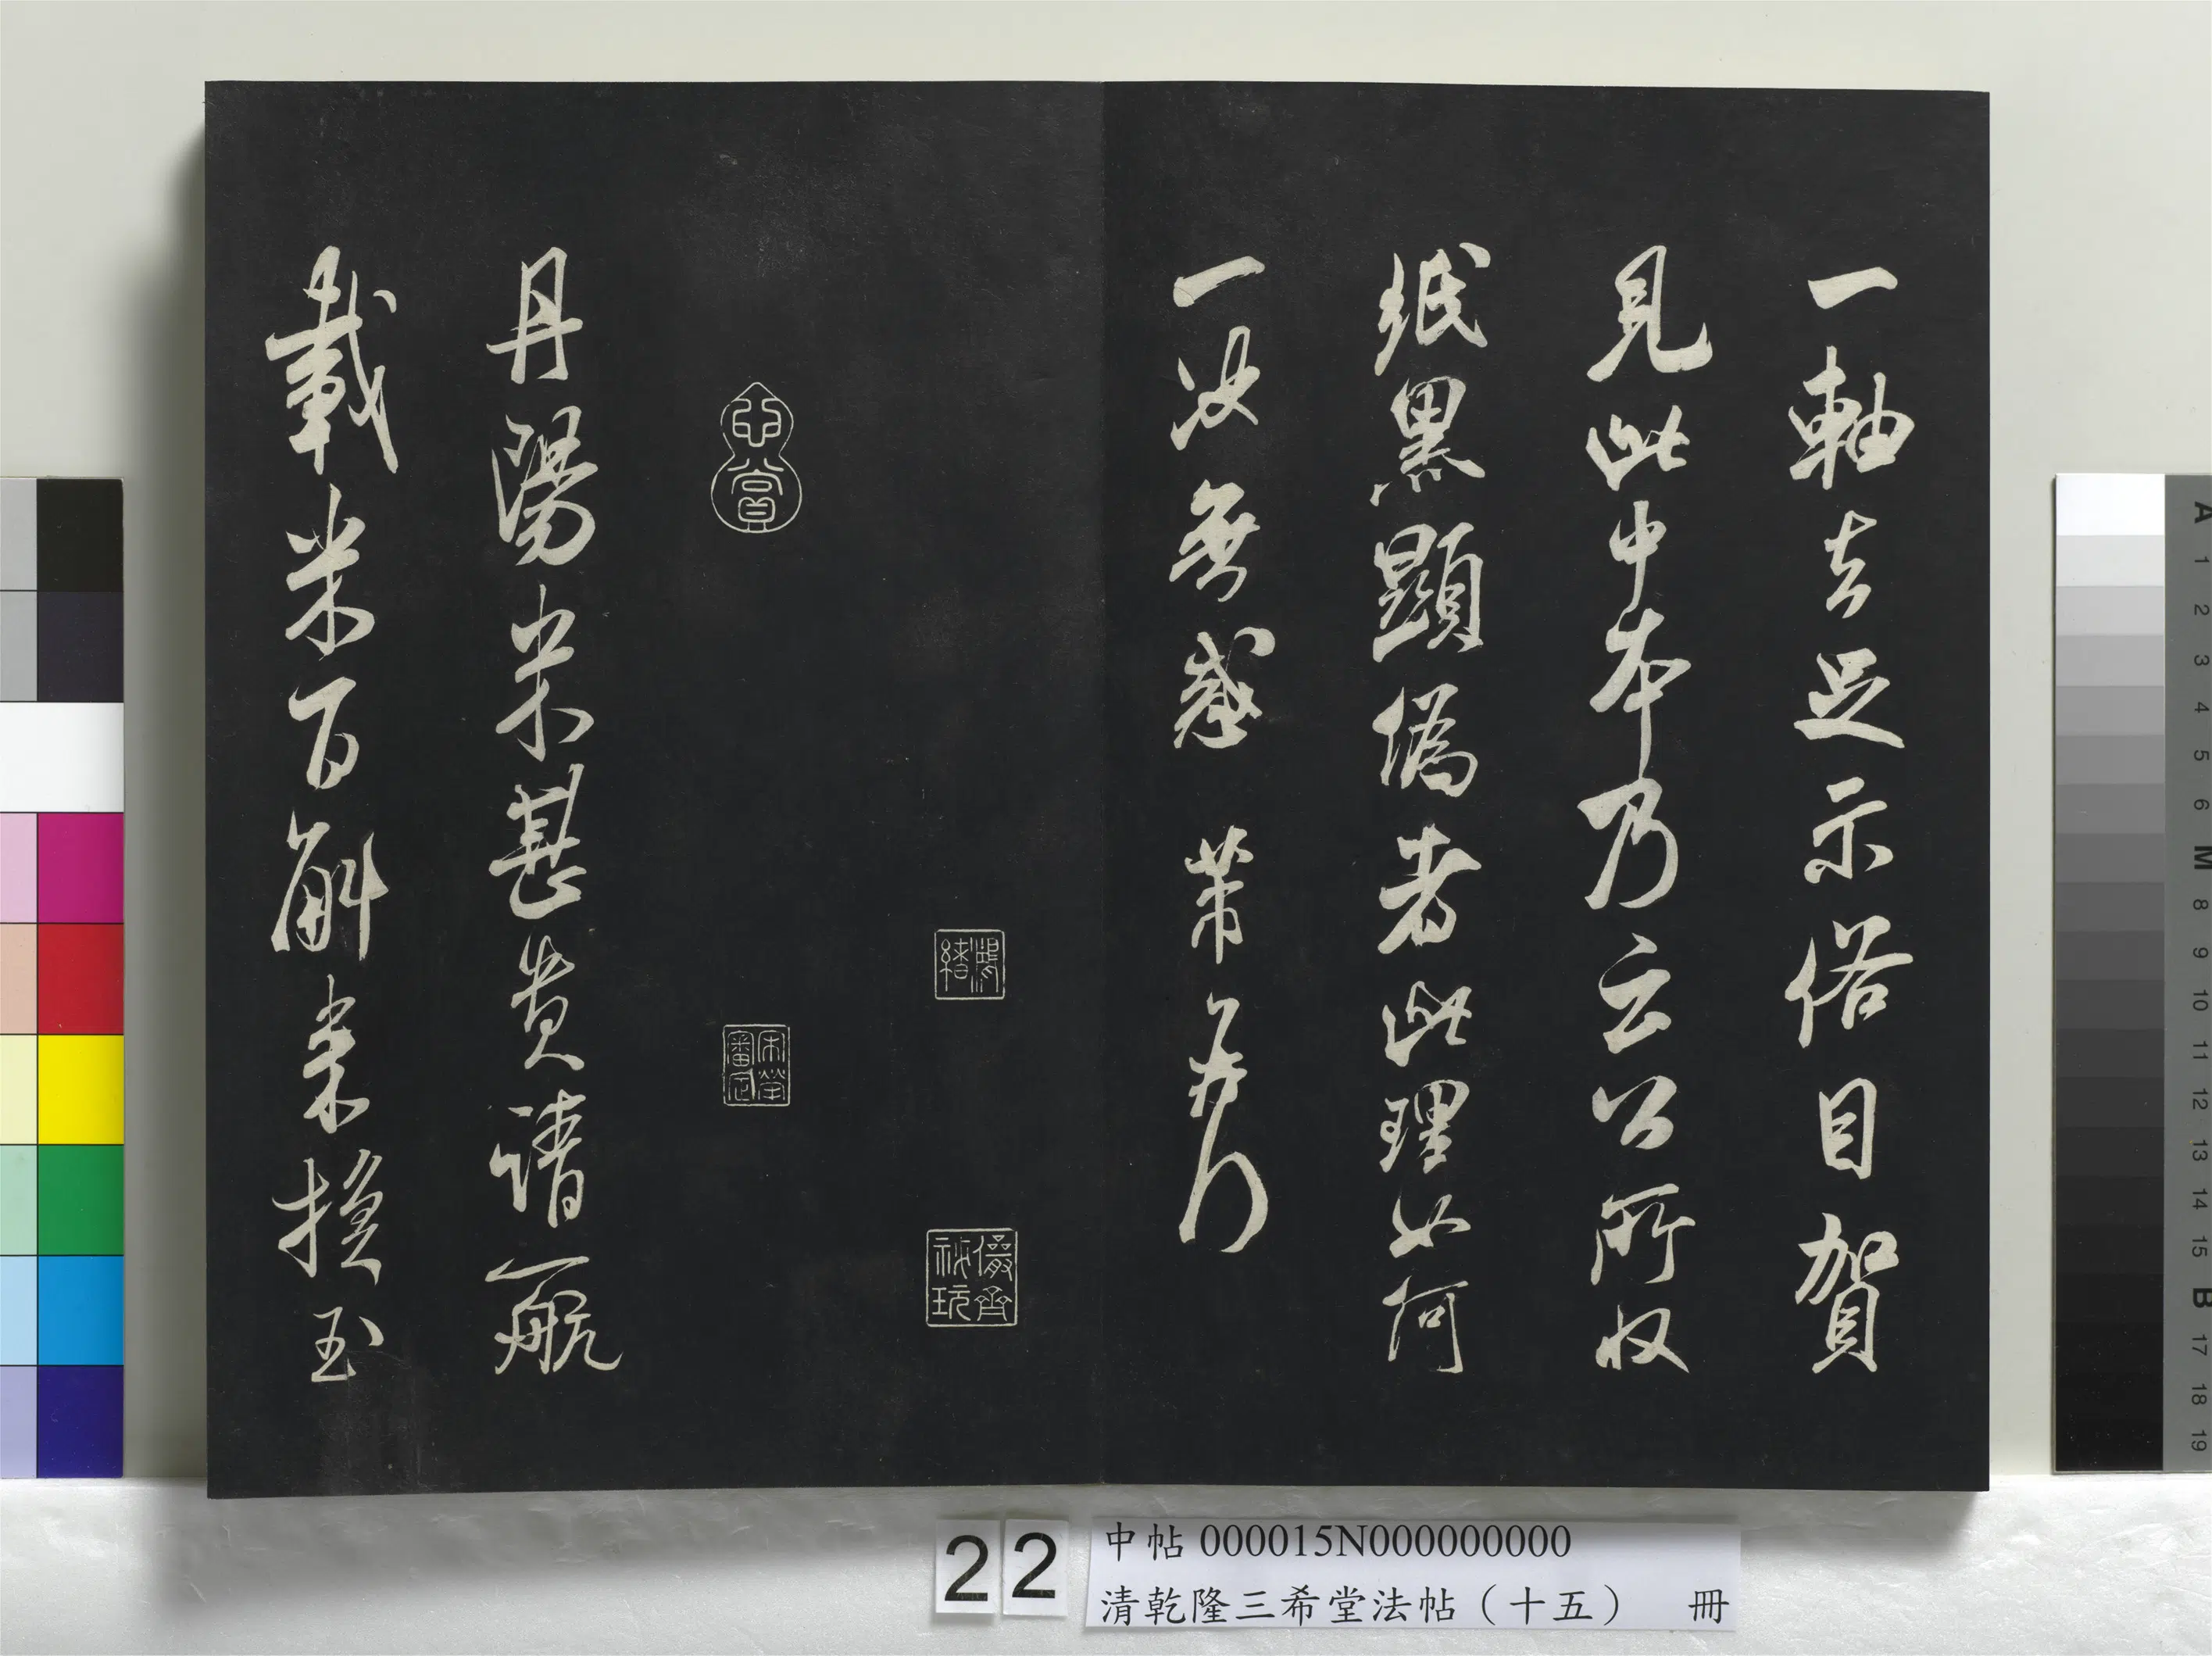 一軸去足示俗目賀
見此中本乃云公所收
紙黑顯偽者此理如何
一決無惑 芾頓首
鴻緒
儼齋秘玩
心賞
宋犖審定
丹陽米甚貴請一航
載米百斛來換玉
22
中帖 000015N000000000
清乾隆三希堂法帖（十五） 冊
A 1 2 3 4 5 6 M 8 9 10 11 12 13 14 15 B 17 18 19